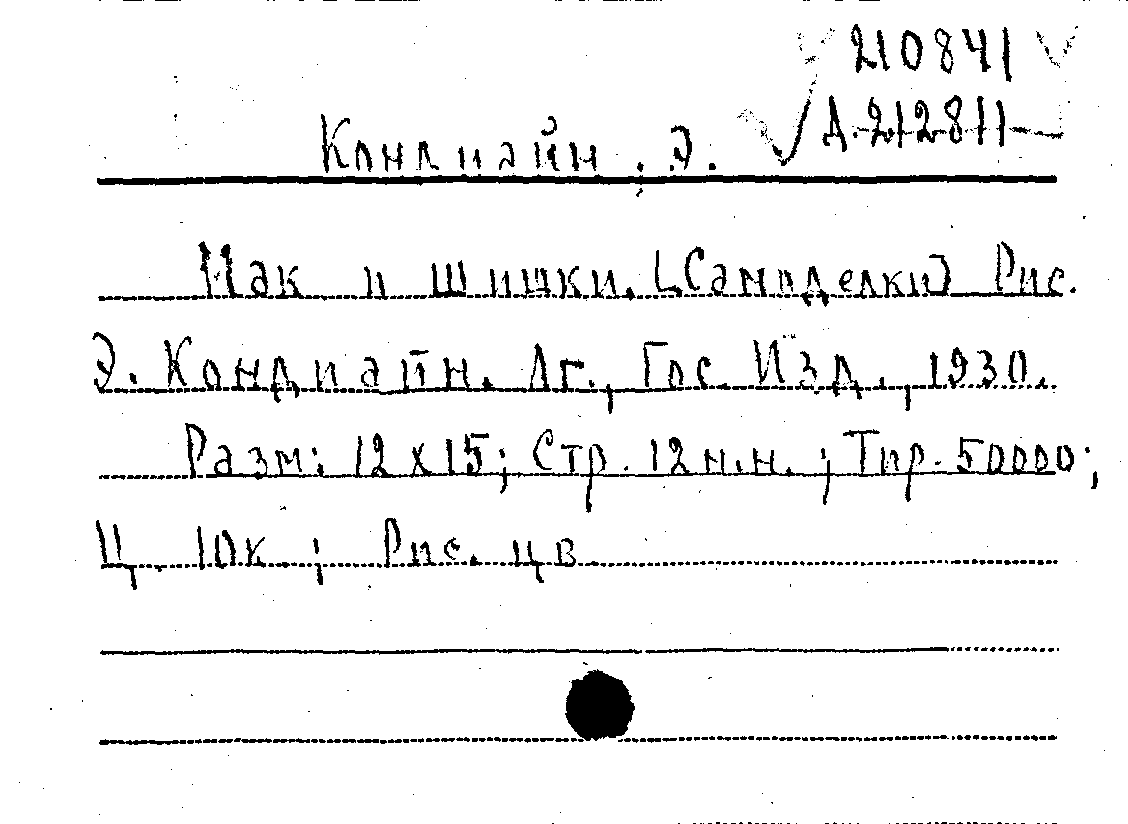 210841
Д-212811
Кондиайн, Э.
Мак и шишки. [Самоделки] Рис.
Э. Кондиайн. Лг., Гос. Изд., 1930.
Разм: 12 x 15; Стр. 12 н.н.; Тир. 50000;
Ц. 10к; Рис. цв.